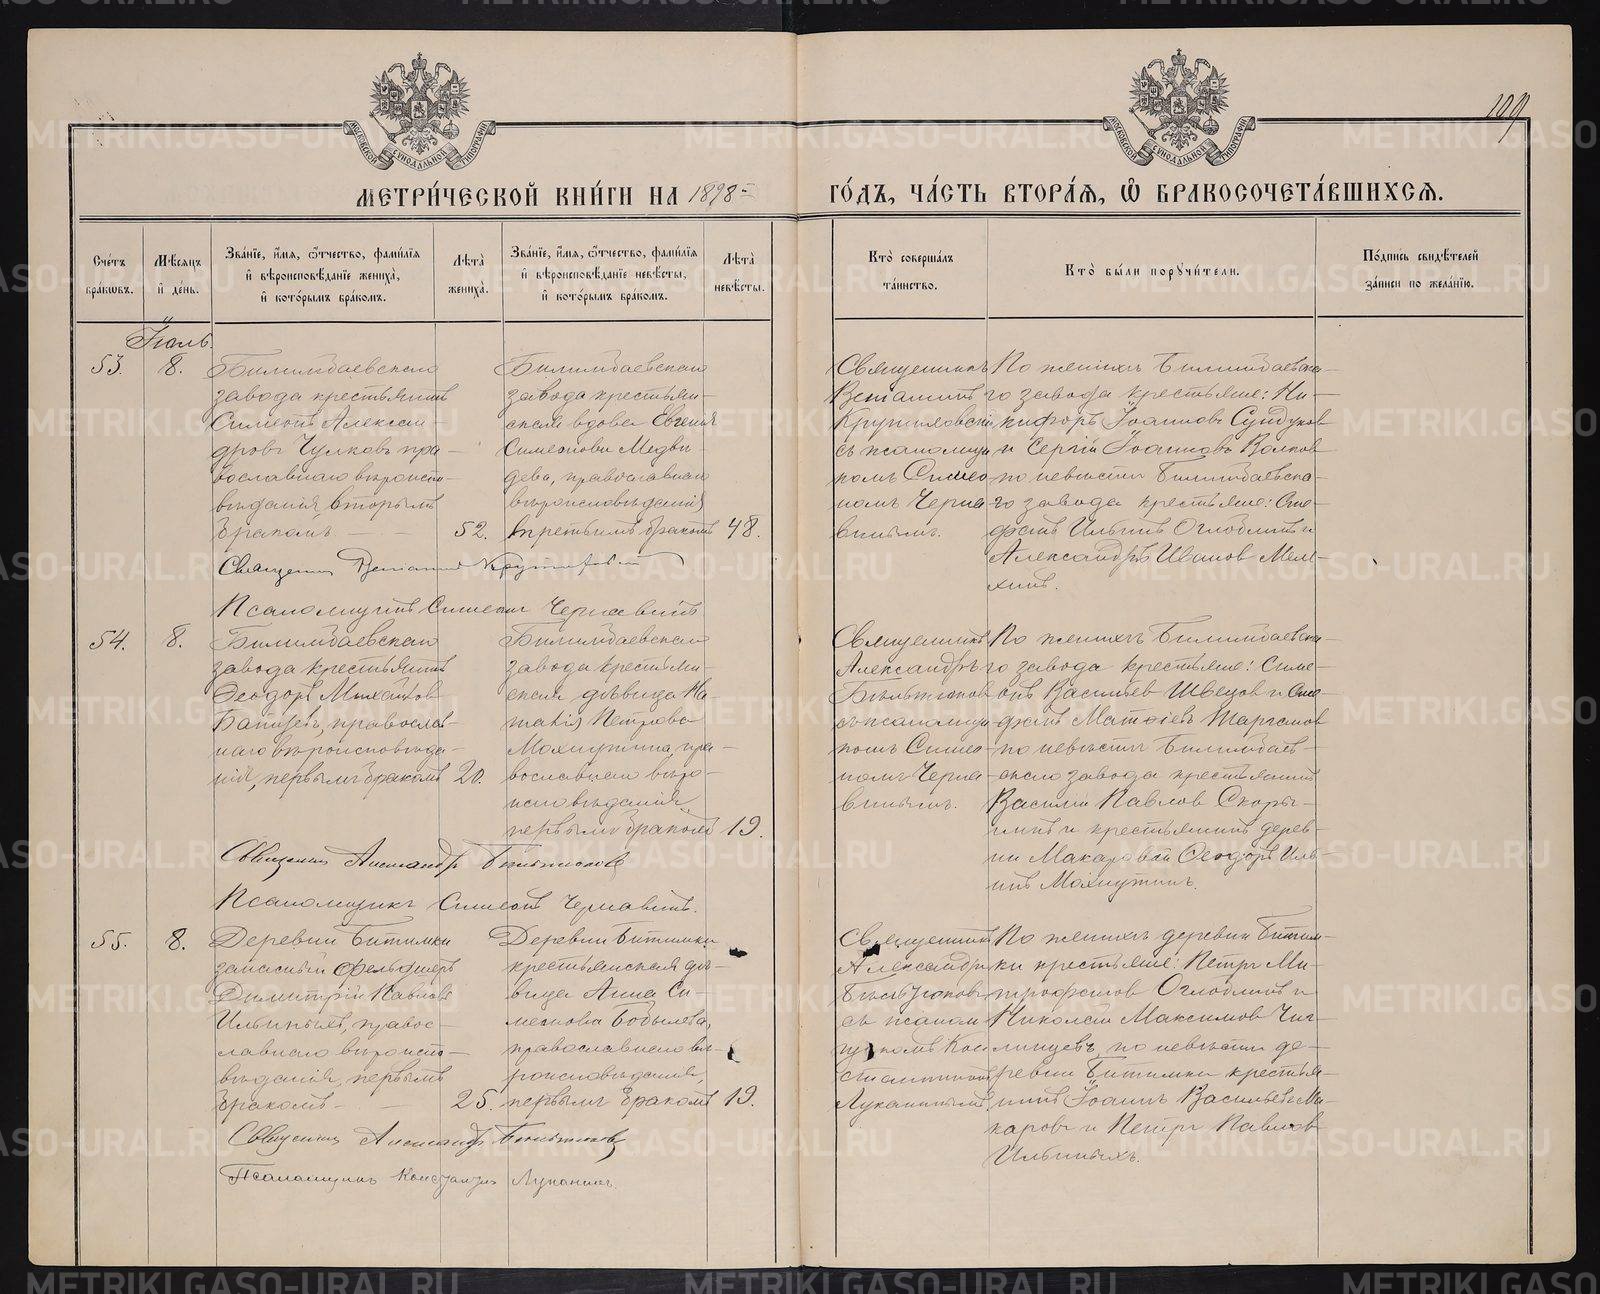 109
МОСКОВСКОЙ СѴНОДАЛЬНОЙ ТИПОГРАФІИ
МОСКОВСКОЙ СѴНОДАЛЬНОЙ ТИПОГРАФІИ
МЕТРИ́ЧЕСКОЙ КНИ́ГИ НА 1898 ГО́ДЪ, ЧА́СТЬ ВТОРА́Я, Ѡ БРАКОСОЧЕТА́ВШИХСЯ.
Сче́тъ бра́кѡвъ.
Мѣ́сяцъ и҆ де́нь.
Зва́нїе, и҆́мя, ѻ҆́тчество, фами́лїя и҆ вѣроисповѣ́данїе жениха̀, и҆ кото́рымъ бра́комъ.
Лѣта̀ жениха̀.
Зва́нїе, и҆́мя, ѻ҆́тчество, фами́лїя и҆ вѣроисповѣ́данїе невѣ́сты, и҆ кото́рымъ бра́комъ.
Лѣта̀ невѣ́сты.
Кто̀ соверша́лъ та́инство.
Кто̀ бы́ли поручи́тели.
По́дпись свидѣ́телей за́писи по жела́нїю.
Іюль.
53.
8.
Билимбаевскаго
завода крестьянинъ
Симеонъ Александ-
дровъ Чулковъ, пра-
вославнаго вѣроиспо-
вѣданія, вторымъ
бракомъ.
52.
Билимбаевскаго
завода крестьян-
ская вдова Евгенія
Симеонова Медвѣ-
дева, православнаго
вѣроисповѣданія
третьимъ бракомъ
48.
Священникъ
Веніаминъ
Крутиховскій
съ псаломщи-
комъ Симео-
номъ Черна-
винымъ.
По женихѣ Билимбаевска-
го завода крестьяне: Ни-
кифоръ Іоанновъ Сундуковъ
и Сергій Іоанновъ Волковъ
по невѣстѣ Билимбаевска-
го завода крестьяне: Сте-
фанъ Ильинъ Оглоблинъ и
Александръ Ивановъ Меле-
хинъ.
Священникъ Веніаминъ Крутиховскій
Псаломщикъ Симеонъ Чернавинъ
54.
8.
Билимбаевскаго
завода крестьянинъ
Ѳеодоръ Михайловъ
православ-
наго вѣроисповѣда-
нія, первымъ бракомъ
20.
Билимбаевскаго
завода крестьян-
ская дѣвица На-
талія Петрова
Махнутина, пра-
вославнаго вѣро-
исповѣданія,
первымъ бракомъ
19.
Священникъ
Александръ
Бѣльтюковъ
съ псаломщи-
комъ Симео-
номъ Черна-
винымъ.
По женихѣ Билимбаевска-
го завода крестьяне: Симе-
онъ Васильевъ Швецовъ и Сте-
фанъ Матѳіевъ
по невѣстѣ Билимбаев-
скаго завода крестьянинъ
Василій Павловъ Скоры-
нинъ и крестьянинъ дерев-
ни Макаровой Ѳеодоръ Иль-
инъ Махнутинъ.
Священникъ Александръ Бѣльтюковъ
Псаломщикъ Симеонъ Чернавинъ.
55.
8.
Деревни Битимки
запасный фельдшеръ
Димитрій Павловъ
Ильиныхъ, правос-
лавнаго вѣроиспо-
вѣданія, первымъ
бракомъ
25.
Деревни Битимки
крестьянская дѣ-
вица Анна Си-
меонова Бобылева,
православнаго вѣ-
роисповѣданія,
первымъ бракомъ
19.
Священникъ
Александръ
Бѣльтюковъ
съ псалом-
щикомъ Кон-
стантиномъ
Луканинымъ
По женихѣ деревни Битим-
ки крестьяне: Петръ Ми-
трофановъ Оглоблинъ и
Николай Максимовъ Чиг-
линцевъ, по невѣстѣ де-
ревни Битимки крестья-
нинъ Іоаннъ Васильевъ Ма-
каровъ и Петръ Павловъ
Ильиныхъ.
Священникъ Александръ Бѣльтюковъ
Псаломщикъ Константинъ Луканинъ.
METRIKI.GASO-URAL.RU